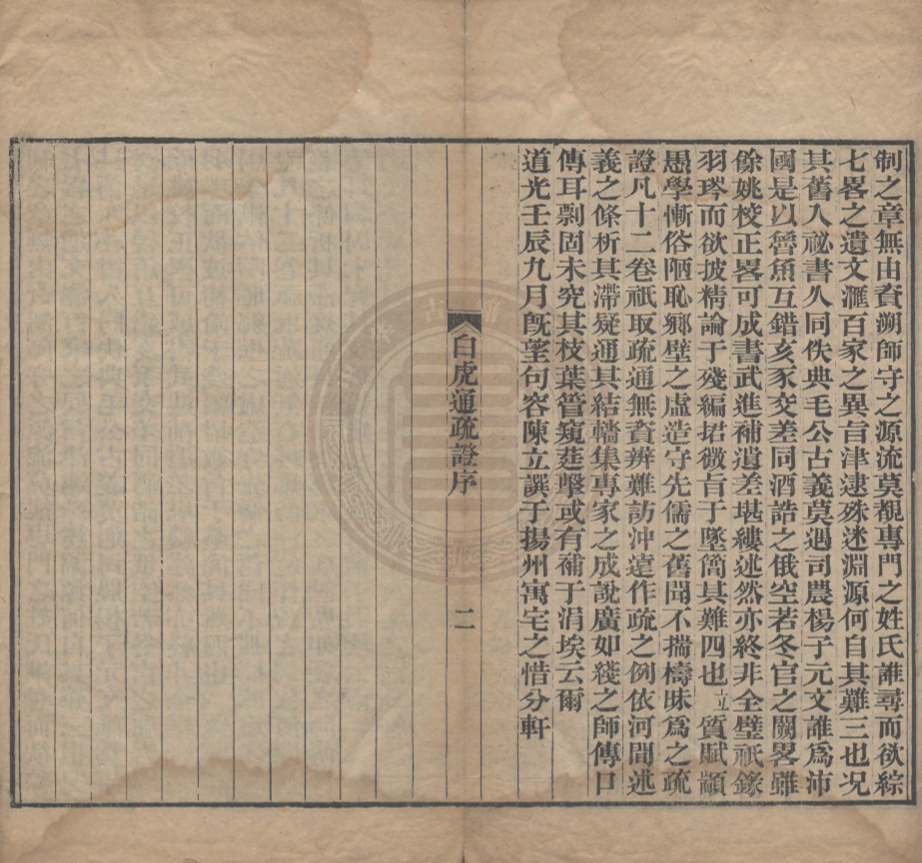 制之章無由資溯師守之源流莫覩專門之姓氏誰尋而欲綜
七畧之遺文滙百家之異旨津逮殊迷淵源何自其難三也況
其舊入祕書久同佚典毛公古義莫遇司農楊子元文誰爲沛
國是以魯魚互錯亥豕交差同酒誥之俄空若冬官之闕畧雖
餘姚校正畧可成書武進補遺差堪縷述然亦終非全璧祇錄
羽琌而欲披精論于殘編埕微旨于墜簡其難四也立質賦顓
愚學慚俗陋恥鄉壁之虛造守先儒之舊聞不揣檮昧爲之疏
證凡十二卷祇取疏通無資辨難訪沖遠作疏之例依河間述
義之條析其滯疑通其結轖集專家之成說廣如綫之師傳口
傳耳剽固未究其枝葉管窺莛擊或有補于涓埃云爾
道光壬辰九月旣望句容陳立譔于揚州寓宅之惜分軒
白虎通疏證序 二